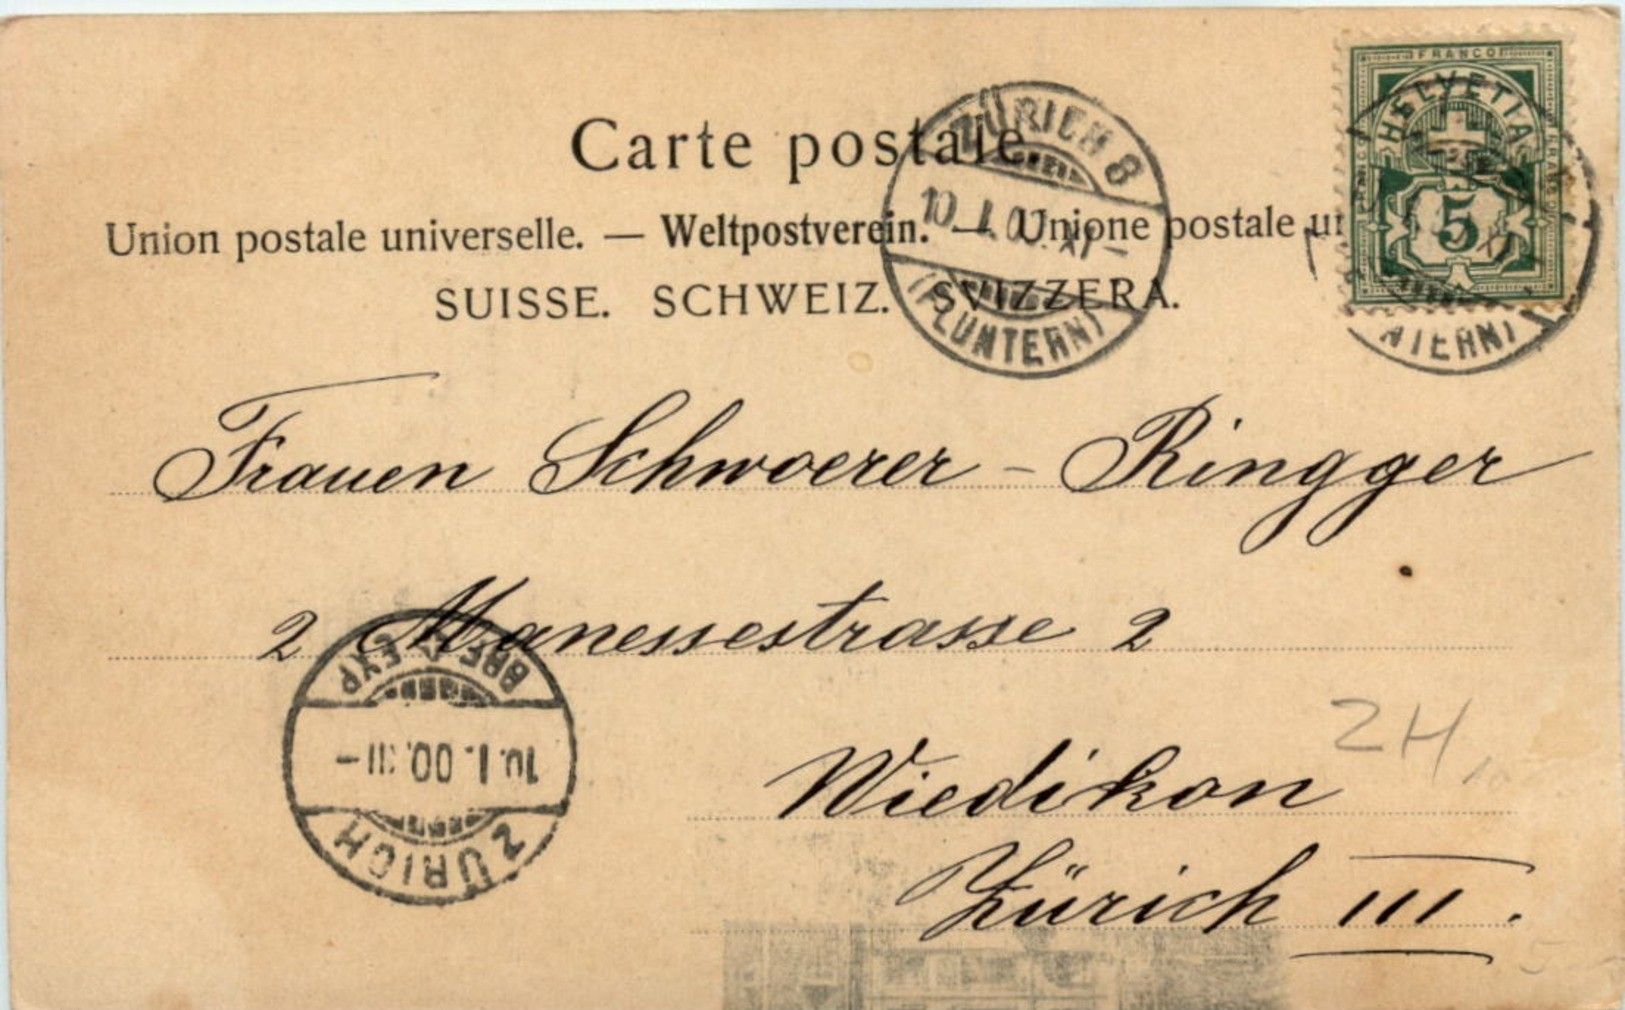 FRANCO
HELVETIA
5
Carte postale
ZÜRICH 8
10.I.00.XI-
(FLUNTERN)
NTERN)
Union postale universelle. — Weltpostverein. — Unione postale un
SUISSE. SCHWEIZ. SVIZZERA.
Frauen Schwoerer - Ringger
2 Manessestrasse 2
Wiedikon
Zürich III.
ZÜRICH
10.I.00.III-
BRF. EXP
ZH